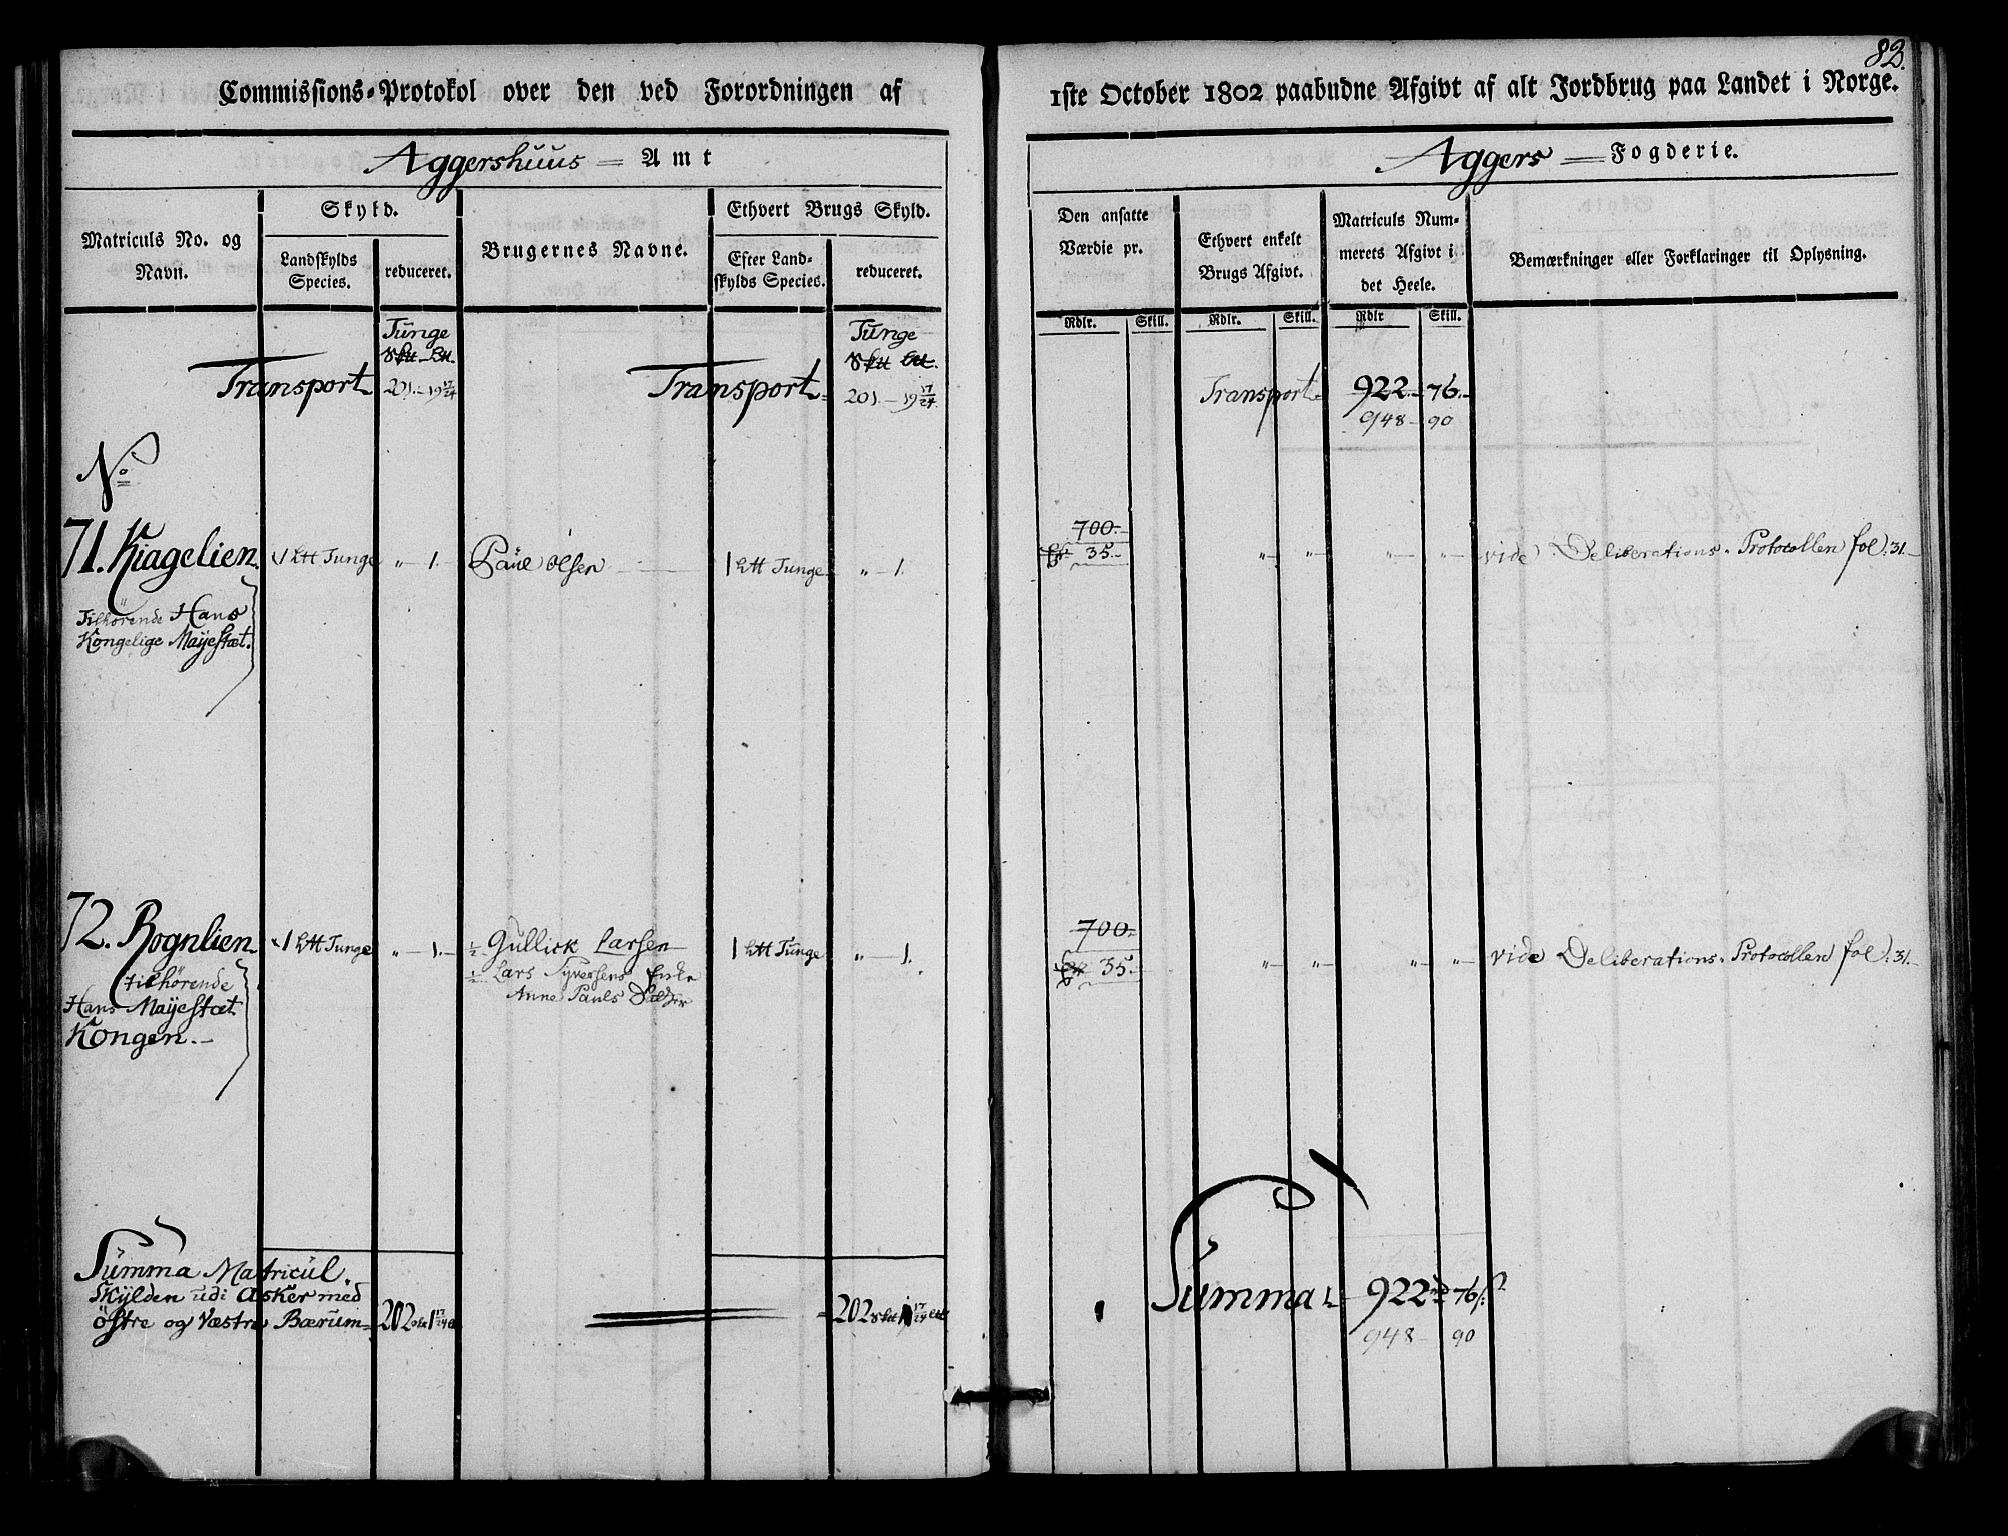 82.
Commissions-Protokol over den ved Forordningen af
1ste October 1802 paabudne Afgivt af alt Jordbrug paa Landet i Norge.
Aggershuus = Amt
Aggers = Fogderie.
Matriculs No. og Navn.
Skyld.
Landskylds Species.
reduceret.
Brugernes Navne.
Ethvert Brugs Skyld.
Efter Landskylds Species.
reduceret.
Den ansatte Værdie pr.
Ethvert enkelt Brugs Afgivt.
Matriculs Nummerets Afgivt i det Heele.
Bemærkninger eller Forklaringer til Oplysning.
Rdlr. Skill. Rdlr. Skill. Rdlr Skill.
Tunge
Tunge
Transport 201.- 19 17/24
Transport 201.- 19 17/24
Transport 922.- 76.-
948 - 90
No
700.-
71. Kiagelien. 1 Tunge „ - 1. Paul Olsen 1 Tunge „ - 1. 35.- „ „ „ „ vide Deliberations-Protocollen fol. 31.-
Tilhørende Hans
Kongelige Mayestæt.
700.-
72. Rognlien 1 Tunge „ - 1. 1/2 Gullick Larsen 1 Tunge „ - 1. 35.- „ „ „ „ vide Deliberations-Protocollen fol. 31.-
1/2 Lars Syversens Enke
Anne Pauls Datter
tilhørende
Hans Mayestæt
Kongen.-
Summa Matricul.
Skylden udi Asker med
østre og Væstre Bærum 202 1 17/24 = 202 1 17/24
Summa 922 76
948 - 90